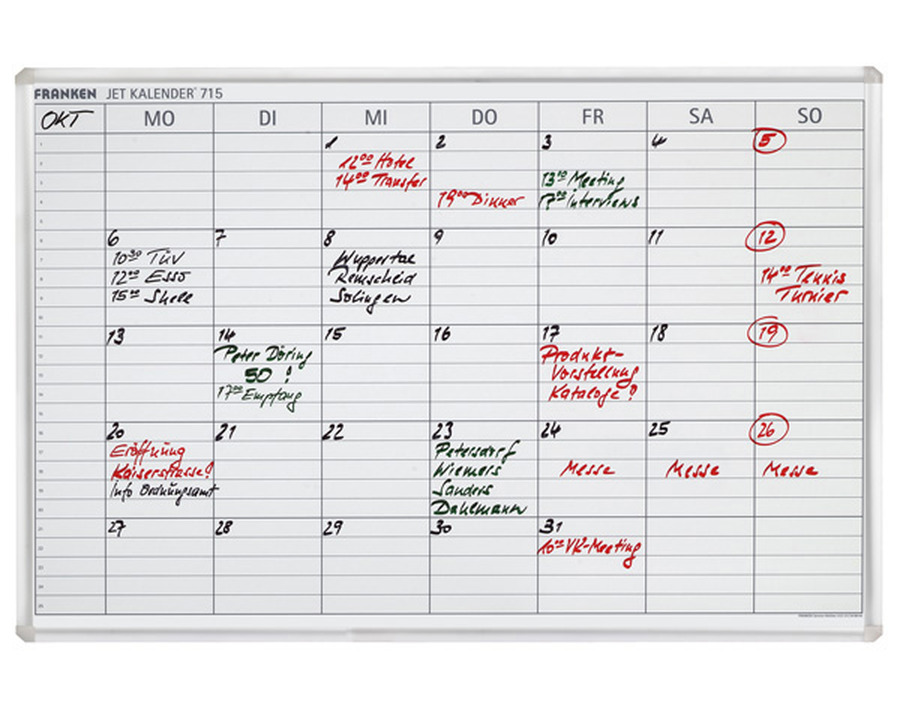 FRANKEN JET KALENDER 715
OKT MO DI MI DO FR SA SO
1 2 3 4 5
12⁰⁰ Hotel
14⁰⁰ Transfer
19⁰⁰ Dinner
13⁰⁰ Meeting
17⁰⁰ Interviews
6 7 8 9 10 11 12
10³⁰ Tüv
12⁰⁰ Esso
15⁰⁰ Shell
Wuppertal
Remscheid
Solingen
14⁰⁰ Tennis
Turnier
13 14 15 16 17 18 19
Peter Döring
50 !
17⁰⁰ Empfang
Produkt-
Vorstellung
Kataloge ?
20 21 22 23 24 25 26
Eröffnung
Kaiserstrasse!
Info Ordnungsamt
Petersdorf
Wiemers
Sanders
Dahlmann
Messe Messe Messe
27 28 29 30 31
10⁰⁰ VK-Meeting